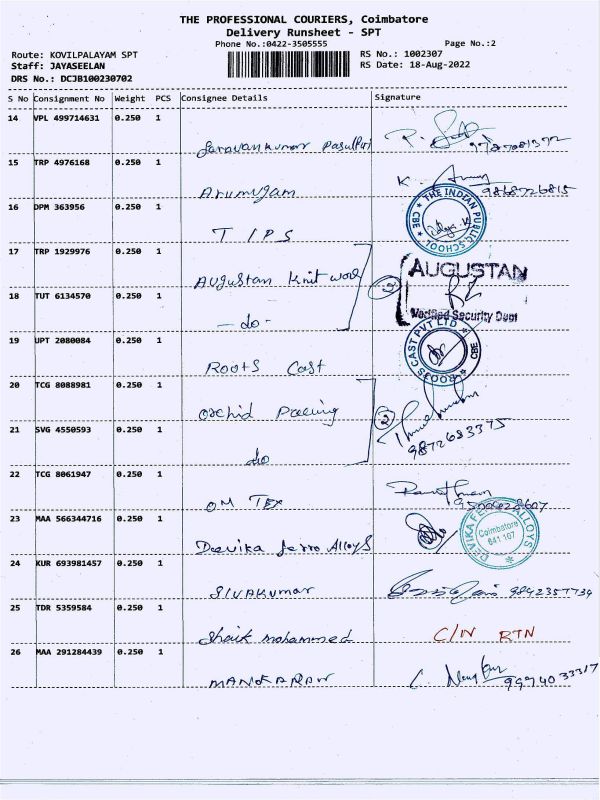 THE PROFESSIONAL COURIERS, Coimbatore
Delivery Runsheet - SPT
Phone No.:0422-3505555
Page No.:2
Route: KOVILPALAYAM SPT
RS No.: 1002307
Staff: JAYASEELAN
RS Date: 18-Aug-2022
DRS No.: DCJB100230702
S No Consignment No Weight PCS Consignee Details Signature
14 VPL 499714631 0.250 1
15 TRP 4976168 0.250 1
Arumugam K 9868726815
16 DPM 363956 0.250 1
THE INDIAN PUBLIC SCHOOL
CBE
TIPS
17 TRP 1929976 0.250 1
Augustan Knit wear
AUGUSTAN
18 TUT 6134570 0.250 1
Verified Security Dept
- do -
19 UPT 2080084 0.250 1
CAST PVT LTD
CBE
Roots Cast
20 TCG 8088981 0.250 1
Orchid 2
21 SVG 4550593 0.250 1
9872683375
do
22 TCG 8061947 0.250 1
OM TEX
23 MAA 566344716 0.250 1
DEVIKA FERRO ALLOYS
Coimbatore
641 107
Deevika ferro Alloys
24 KUR 693981457 0.250 1
SIVAKUMAR 9842357734
25 TDR 5359584 0.250 1
Shaik mohammed C/N RTN
26 MAA 291284439 0.250 1
9994033317